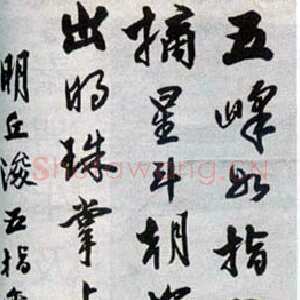 五峰如指
摘星斗朝
出明珠掌上
明丘濬五指